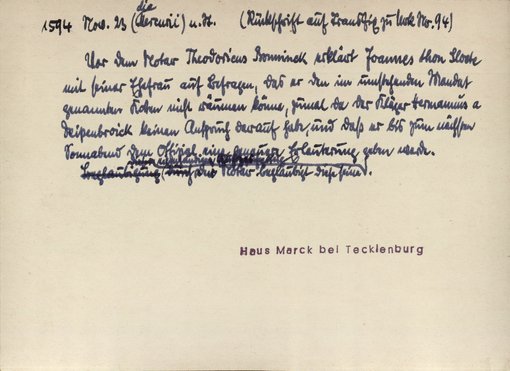 die
1594 Nov. 23 (Mercurii) u. St. (Rückschrift auf Transfix zu Urk Nr. 94)
Vor dem Notar Theodoricus Bominck erklärt Joannes thon Slote
mit seiner Ehefrau auf Befragen, das er den im umstehenden Mandat
genannten Kotten nicht räumen könne, zumal da der Kläger Hermannus a
Deipenbroick keinen Anspruch darauf habe, und daß er bis zum nächsten
Sonnabend dem Offizial eine genauere Erläuterung geben werde.
Beglaubigung (durch den Notar beglaubigt
Haus Marck bei Tecklenburg